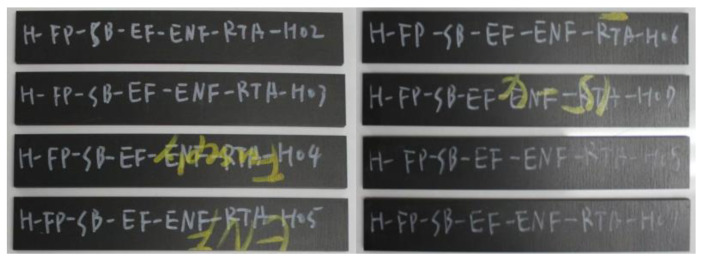 H-FP-SB-EF-ENF-RTA-H02
H-FP-SB-EF-ENF-RTA-H03
H-FP-SB-EF-ENF-RTA-H04
H-FP-SB-EF-ENF-RTA-H05
H-FP-SB-EF-ENF-RTA-H06
H-FP-SB-EF-ENF-RTA-
H-FP-SB-EF-ENF-RTA-H08
H-FP-SB-EF-ENF-RTA-